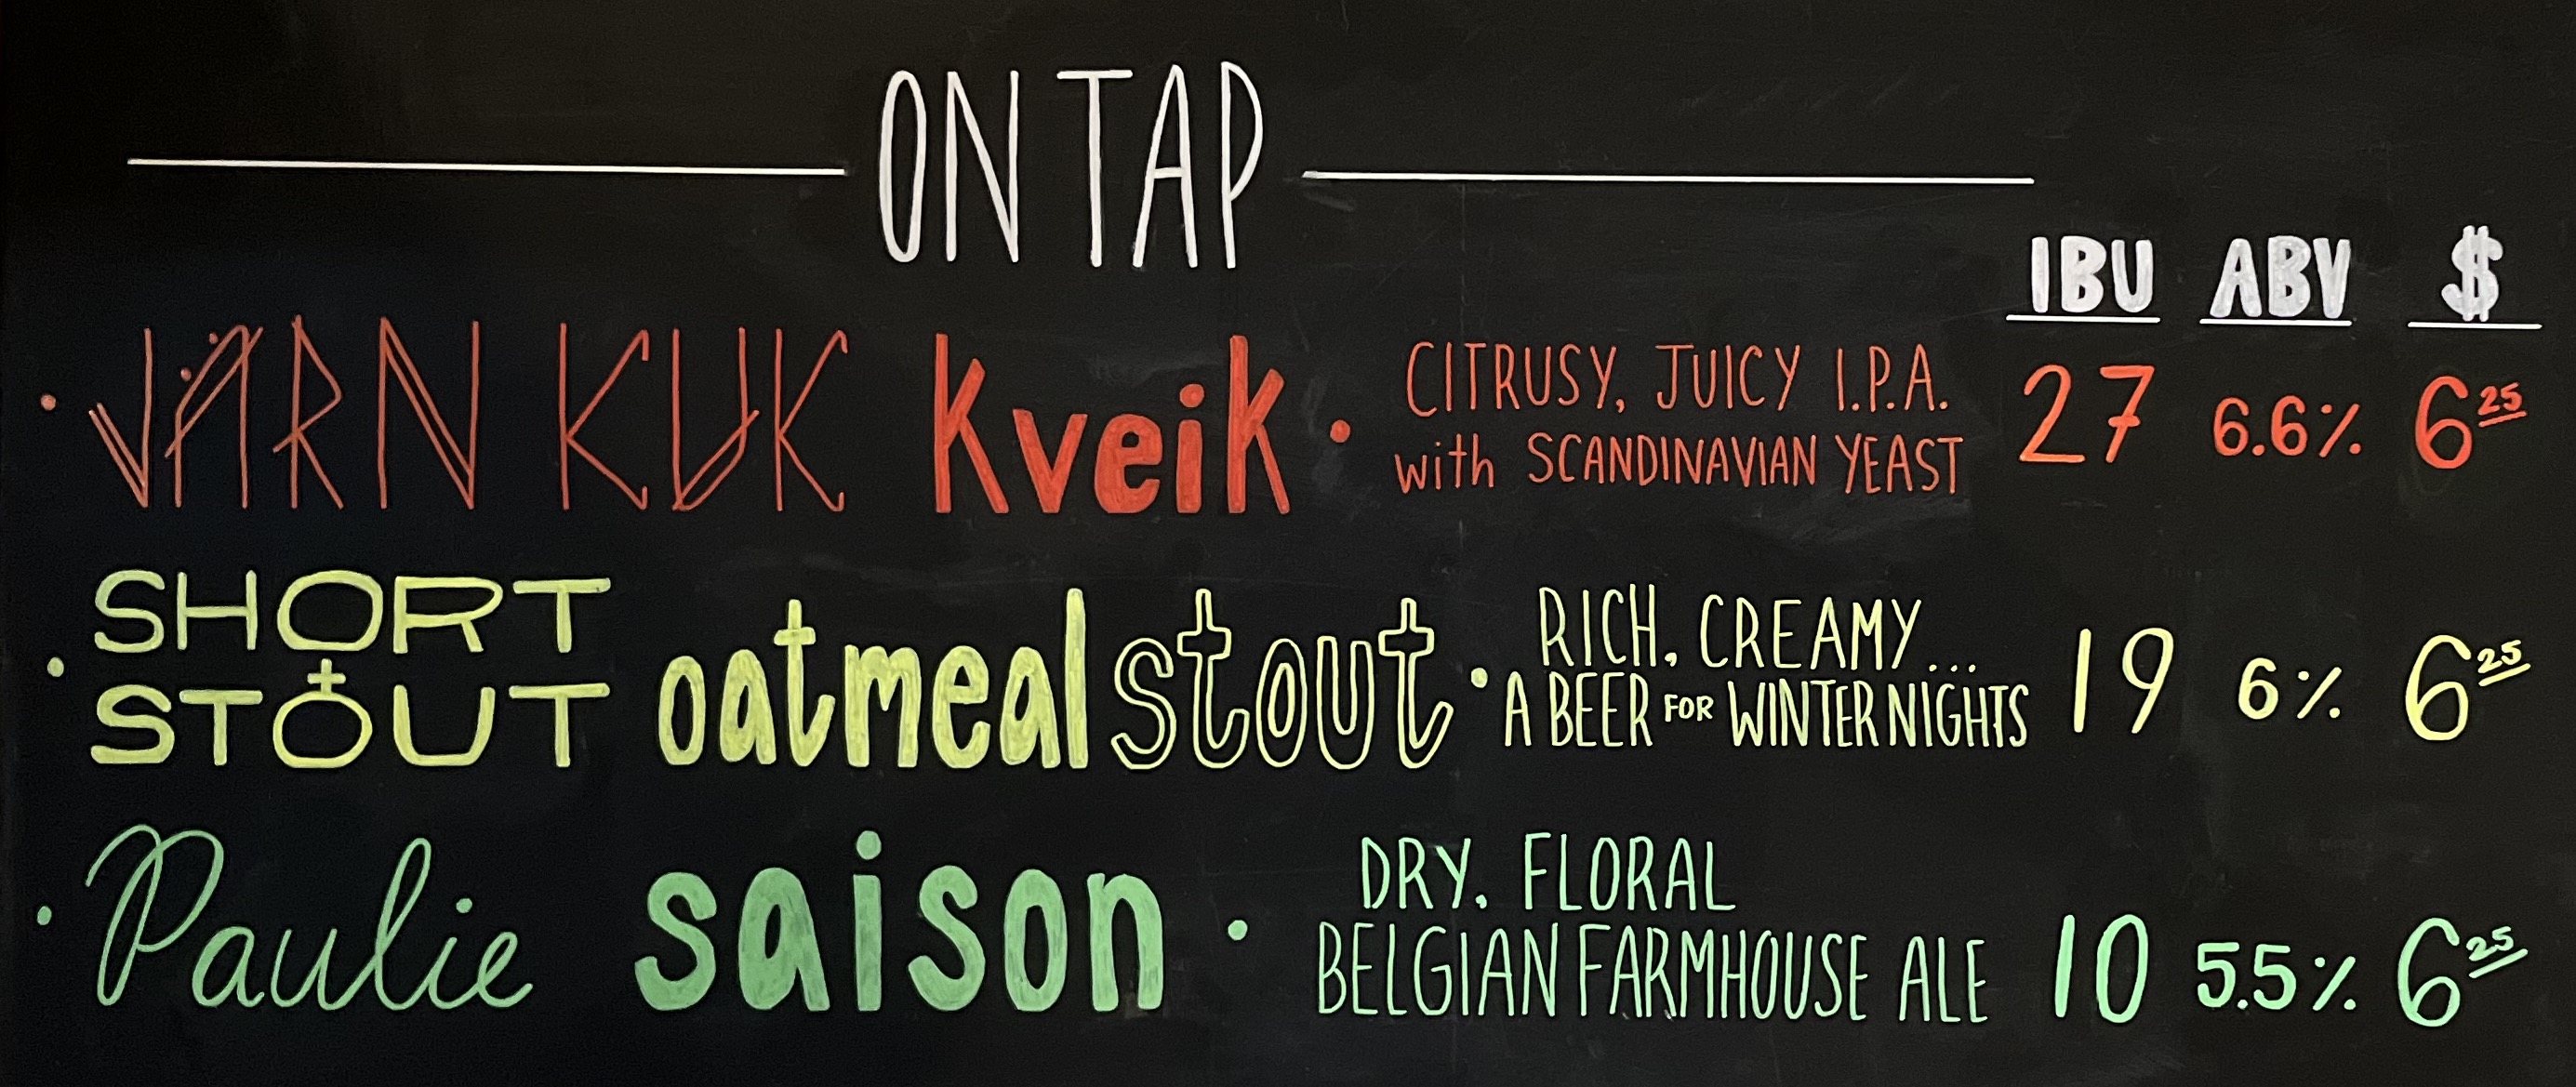 ON TAP
IBU ABV $
• JÄRN KUK Kveik • CITRUSY, JUICY I.P.A. with SCANDINAVIAN YEAST 27 6.6% 6 25
• SHORT STOUT oatmeal stout • RICH, CREAMY... A BEER FOR WINTER NIGHTS 19 6% 6 25
• Paulie saison • DRY, FLORAL BELGIAN FARMHOUSE ALE 10 5.5% 6 25